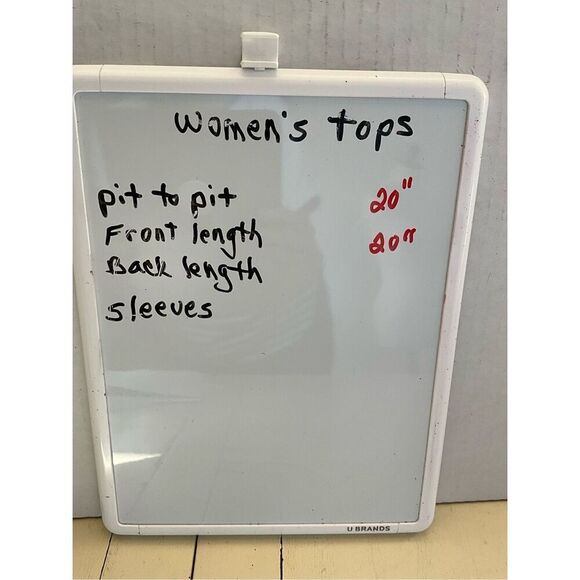 Women's tops
pit to pit 20"
Front length 20"
Back length
sleeves
U BRANDS